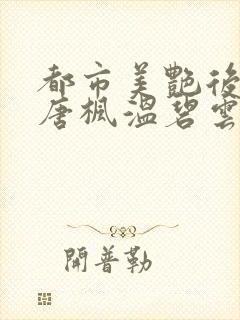 都市美艷後
唐楓溫碧雲
開普勒